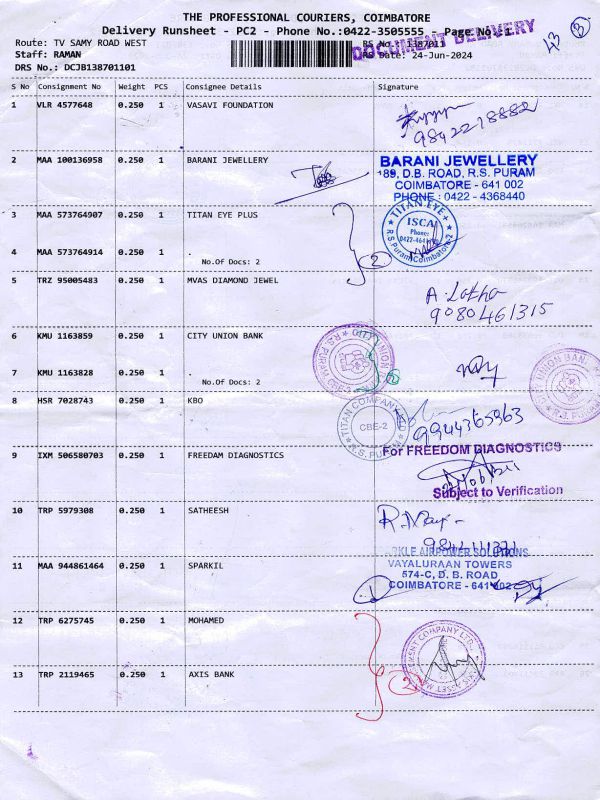 THE PROFESSIONAL COURIERS, COIMBATORE
Delivery Runsheet - PC2 - Phone No.:0422-3505555 Page No. 1
DOCUMENT DELIVERY
Route: TV SAMY ROAD WEST
RS No.: 1387011
13 3
Staff: RAMAN
RS Date: 24-Jun-2024
DRS No.: DCJB138701101
S No Consignment No Weight PCS Consignee Details Signature
1 VLR 4577648 0.250 1 VASAVI FOUNDATION
9842218882
2 MAA 100136958 0.250 1 BARANI JEWELLERY
BARANI JEWELLERY
189, D.B. ROAD, R.S. PURAM
COIMBATORE - 641 002
PHONE : 0422 - 4368440
3 MAA 573764907 0.250 1 TITAN EYE PLUS
TITAN EYE +
ISCA
Phone:
R.S. Puram Coimbatore-2
4 MAA 573764914 0.250 1 .
No.Of Docs: 2
2
5 TRZ 95005483 0.250 1 MVAS DIAMOND JEWEL
A. Latha
9080461315
6 KMU 1163859 0.250 1 CITY UNION BANK
CITY UNION
R.S. PURAM
7 KMU 1163828 0.250 1 .
No.Of Docs: 2
UNION BAN
R.S. PURAM
8 HSR 7028743 0.250 1 KBO
TITAN COMPANY
CBE-2
R.S. PURAM
9944365963
9 IXM 506580703 0.250 1 FREEDAM DIAGNOSTICS
For FREEDOM DIAGNOSTICS
Subject to Verification
10 TRP 5979308 0.250 1 SATHEESH
11 MAA 944861464 0.250 1 SPARKIL
SPARKLE AIRPOWER SOLUTIONS
VAYALURAAN TOWERS
574-C, D. B. ROAD
COIMBATORE - 641 002
12 TRP 6275745 0.250 1 MOHAMED
COMPANY LTD.
13 TRP 2119465 0.250 1 AXIS BANK
2